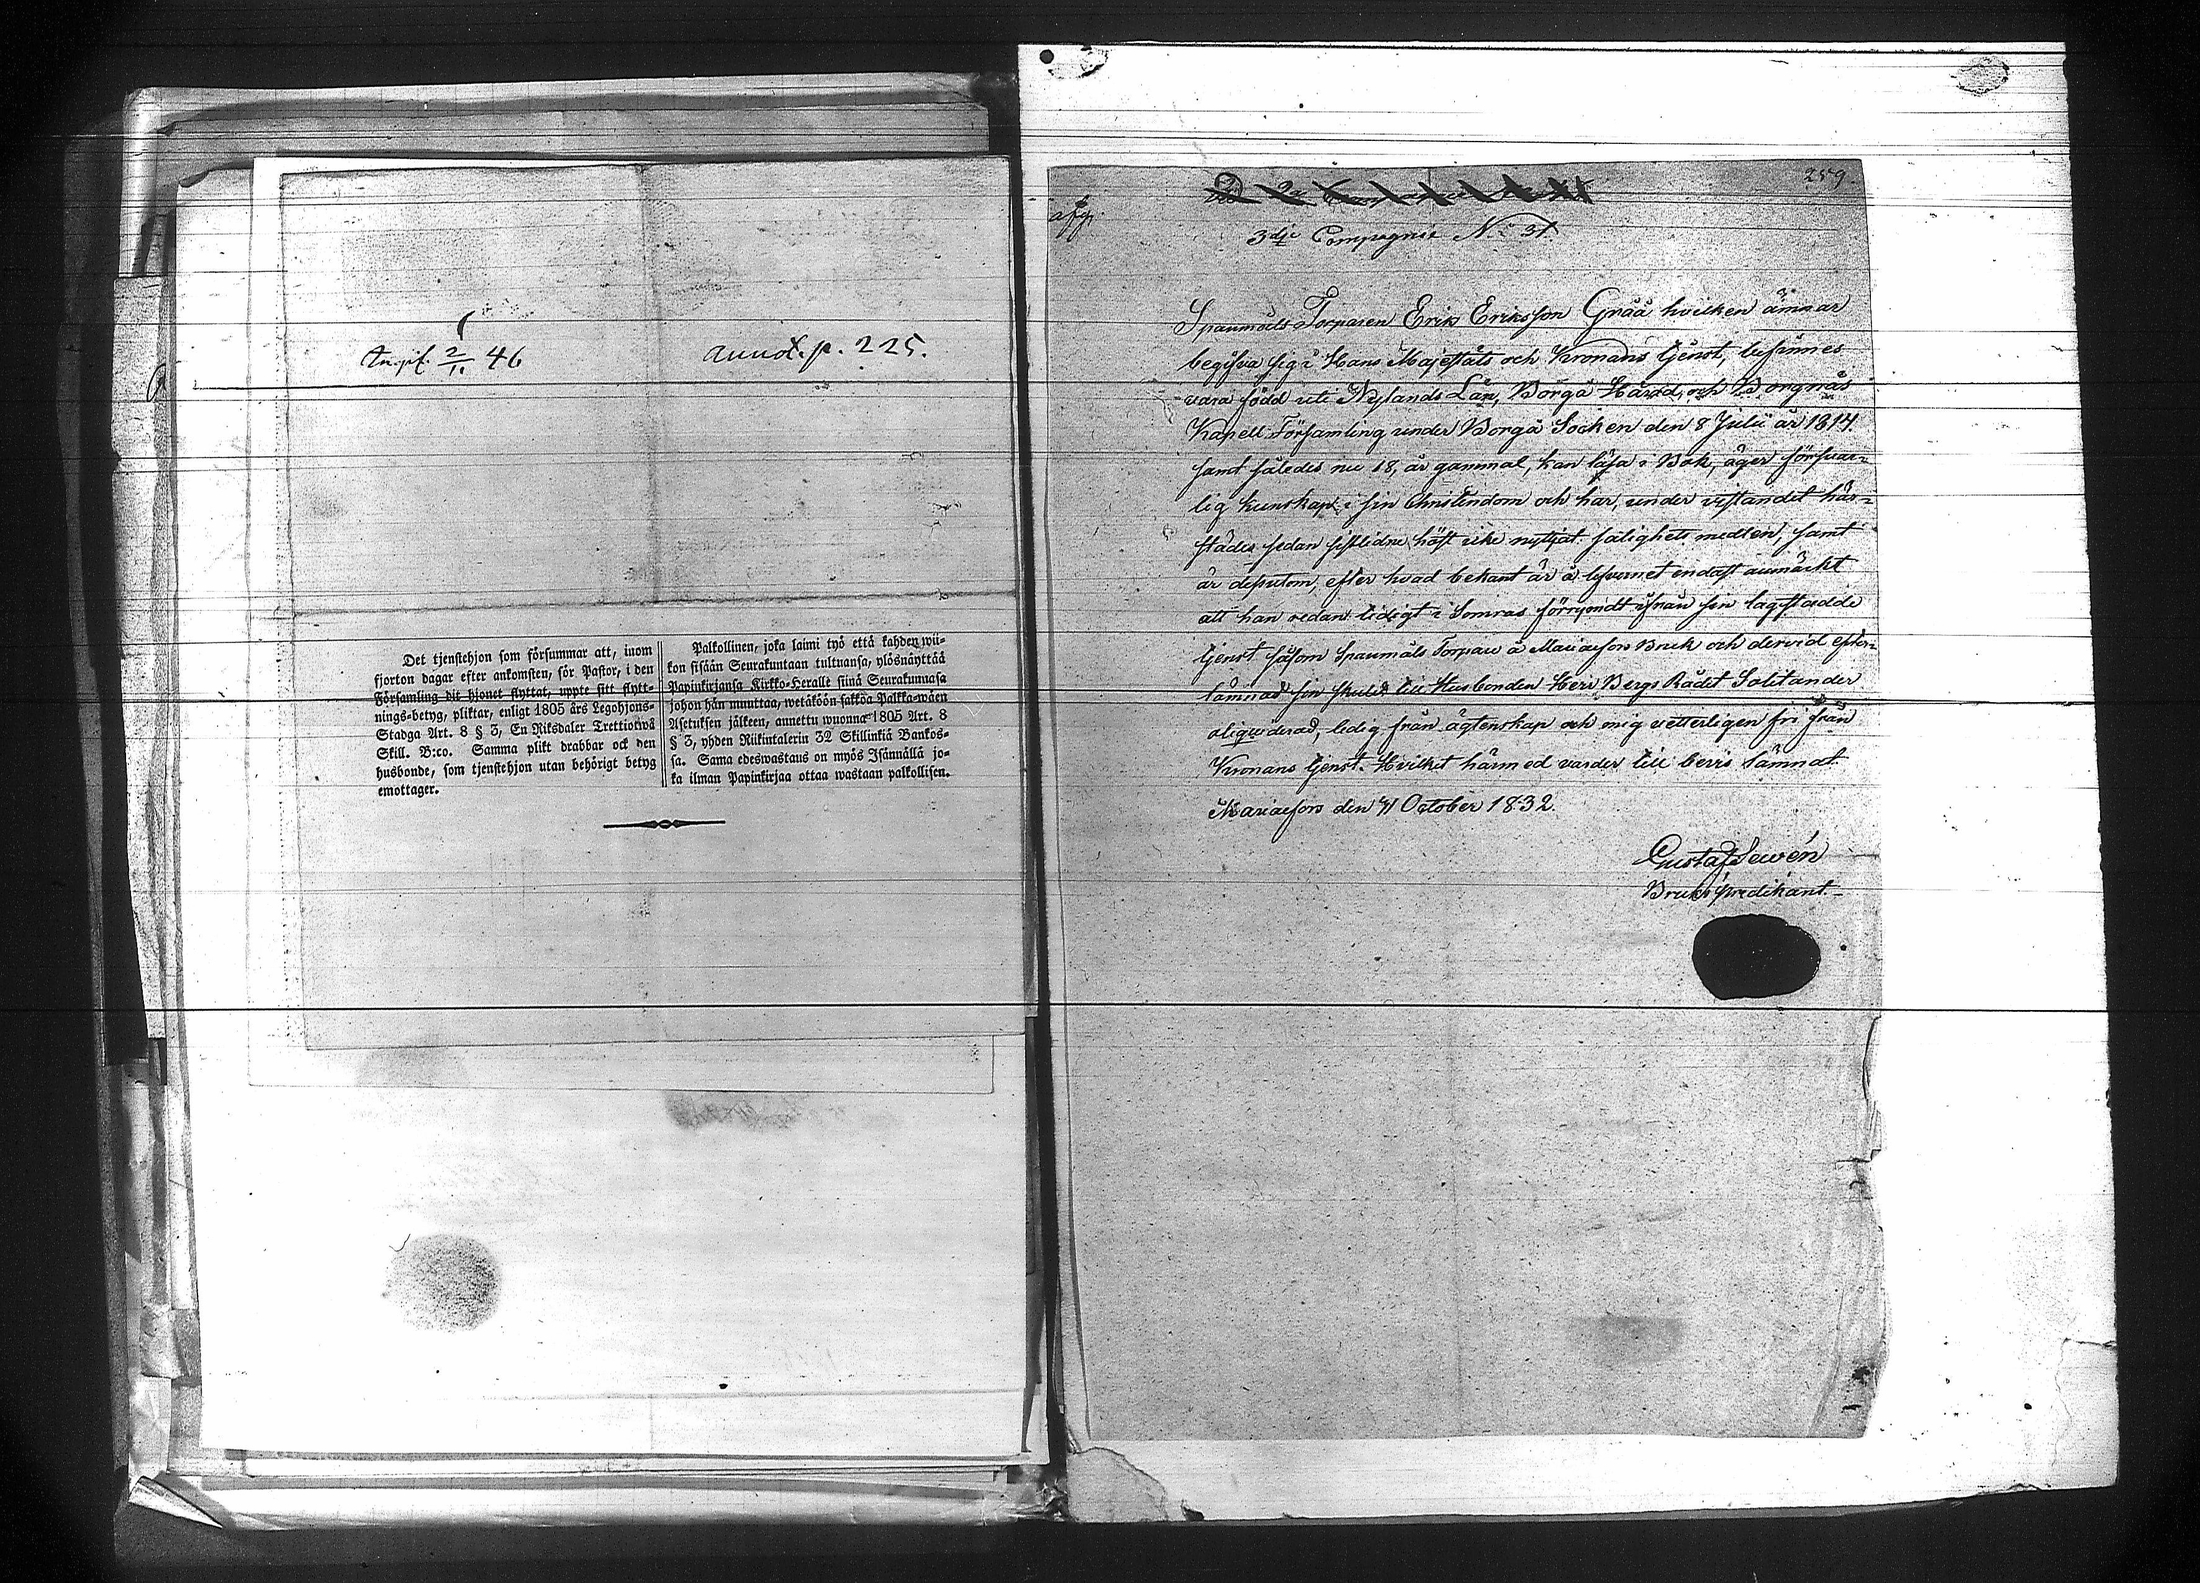 Angif. 2/11 46
annot. p. 225.
Det tjenstehjon som försummar att, inom
fjorton dagar efter ankomsten, för Pastor, i den
Församling dit hjonet flyttat, uppte sitt flytt-
nings-betyg, pliktar, enligt 1805 års Legohjons-
Stadga Art. 8 § 3, En Riksdaler Trettiotwå
Skill. B:co. Samma plikt drabbar ock den
husbonde, som tjenstehjon utan behörigt betyg
emottager.
Palkollinen, joka laimi työ että kahden wii-
kon sisään Seurakuntaan tultuansa, ylösnäyttää
Papinkirjansa Kirkko-Herralle siinä Seurakunnasa
johon hän muuttaa, wetäköön sakkoa Palkka-wäen
Asetuksen jälkeen, annettu wuonna 1805 Art. 8
§ 3, yhden Riikintalerin 32 Skillinkiä Bankos-
sa. Sama edeswastaus on myös Isännällä jo-
ka ilman Papinkirjaa ottaa wastaan palkollisen.
259.
afg.
3dje Compagnie No 31.
Spanmåls Torparen Erik Eriksson Gråå hvilken ämnar
begifva sig i Hans Majestäts och Kronans tjenst, befinnes
vara född uti Nylands Län, Borgå Härad, och Borgnäs
Kapell Församling under Borgå Socken den 8 Julii år 1814.
samt således nu 18, år gammal, kan läsa i Bok, äger försvar-
lig kunskap i sin Christendom och har, under vistandet här-
städes sedan sistlidne höst icke nyttjat salighets medlen, samt
är dessutom, efter hvad bekant är å lefvernet endast anmärkt
att han redan tidigt i Somras förrymdt ifrån sin lagstadde
tjenst såsom Spanmåls Torpare å Mariæfors Bruk och dervid efter-
lämnad sin skuld till Husbonden Herr Bergs Rådet Solitander
oliquiderad, ledig från ägtenskap och mig vetterligen fri från
Kronans tjenst. Hvilket härmed varder till bevis lämnat
Mariæfors den 71 October 1832.
Gustaf
Bruks predikant.